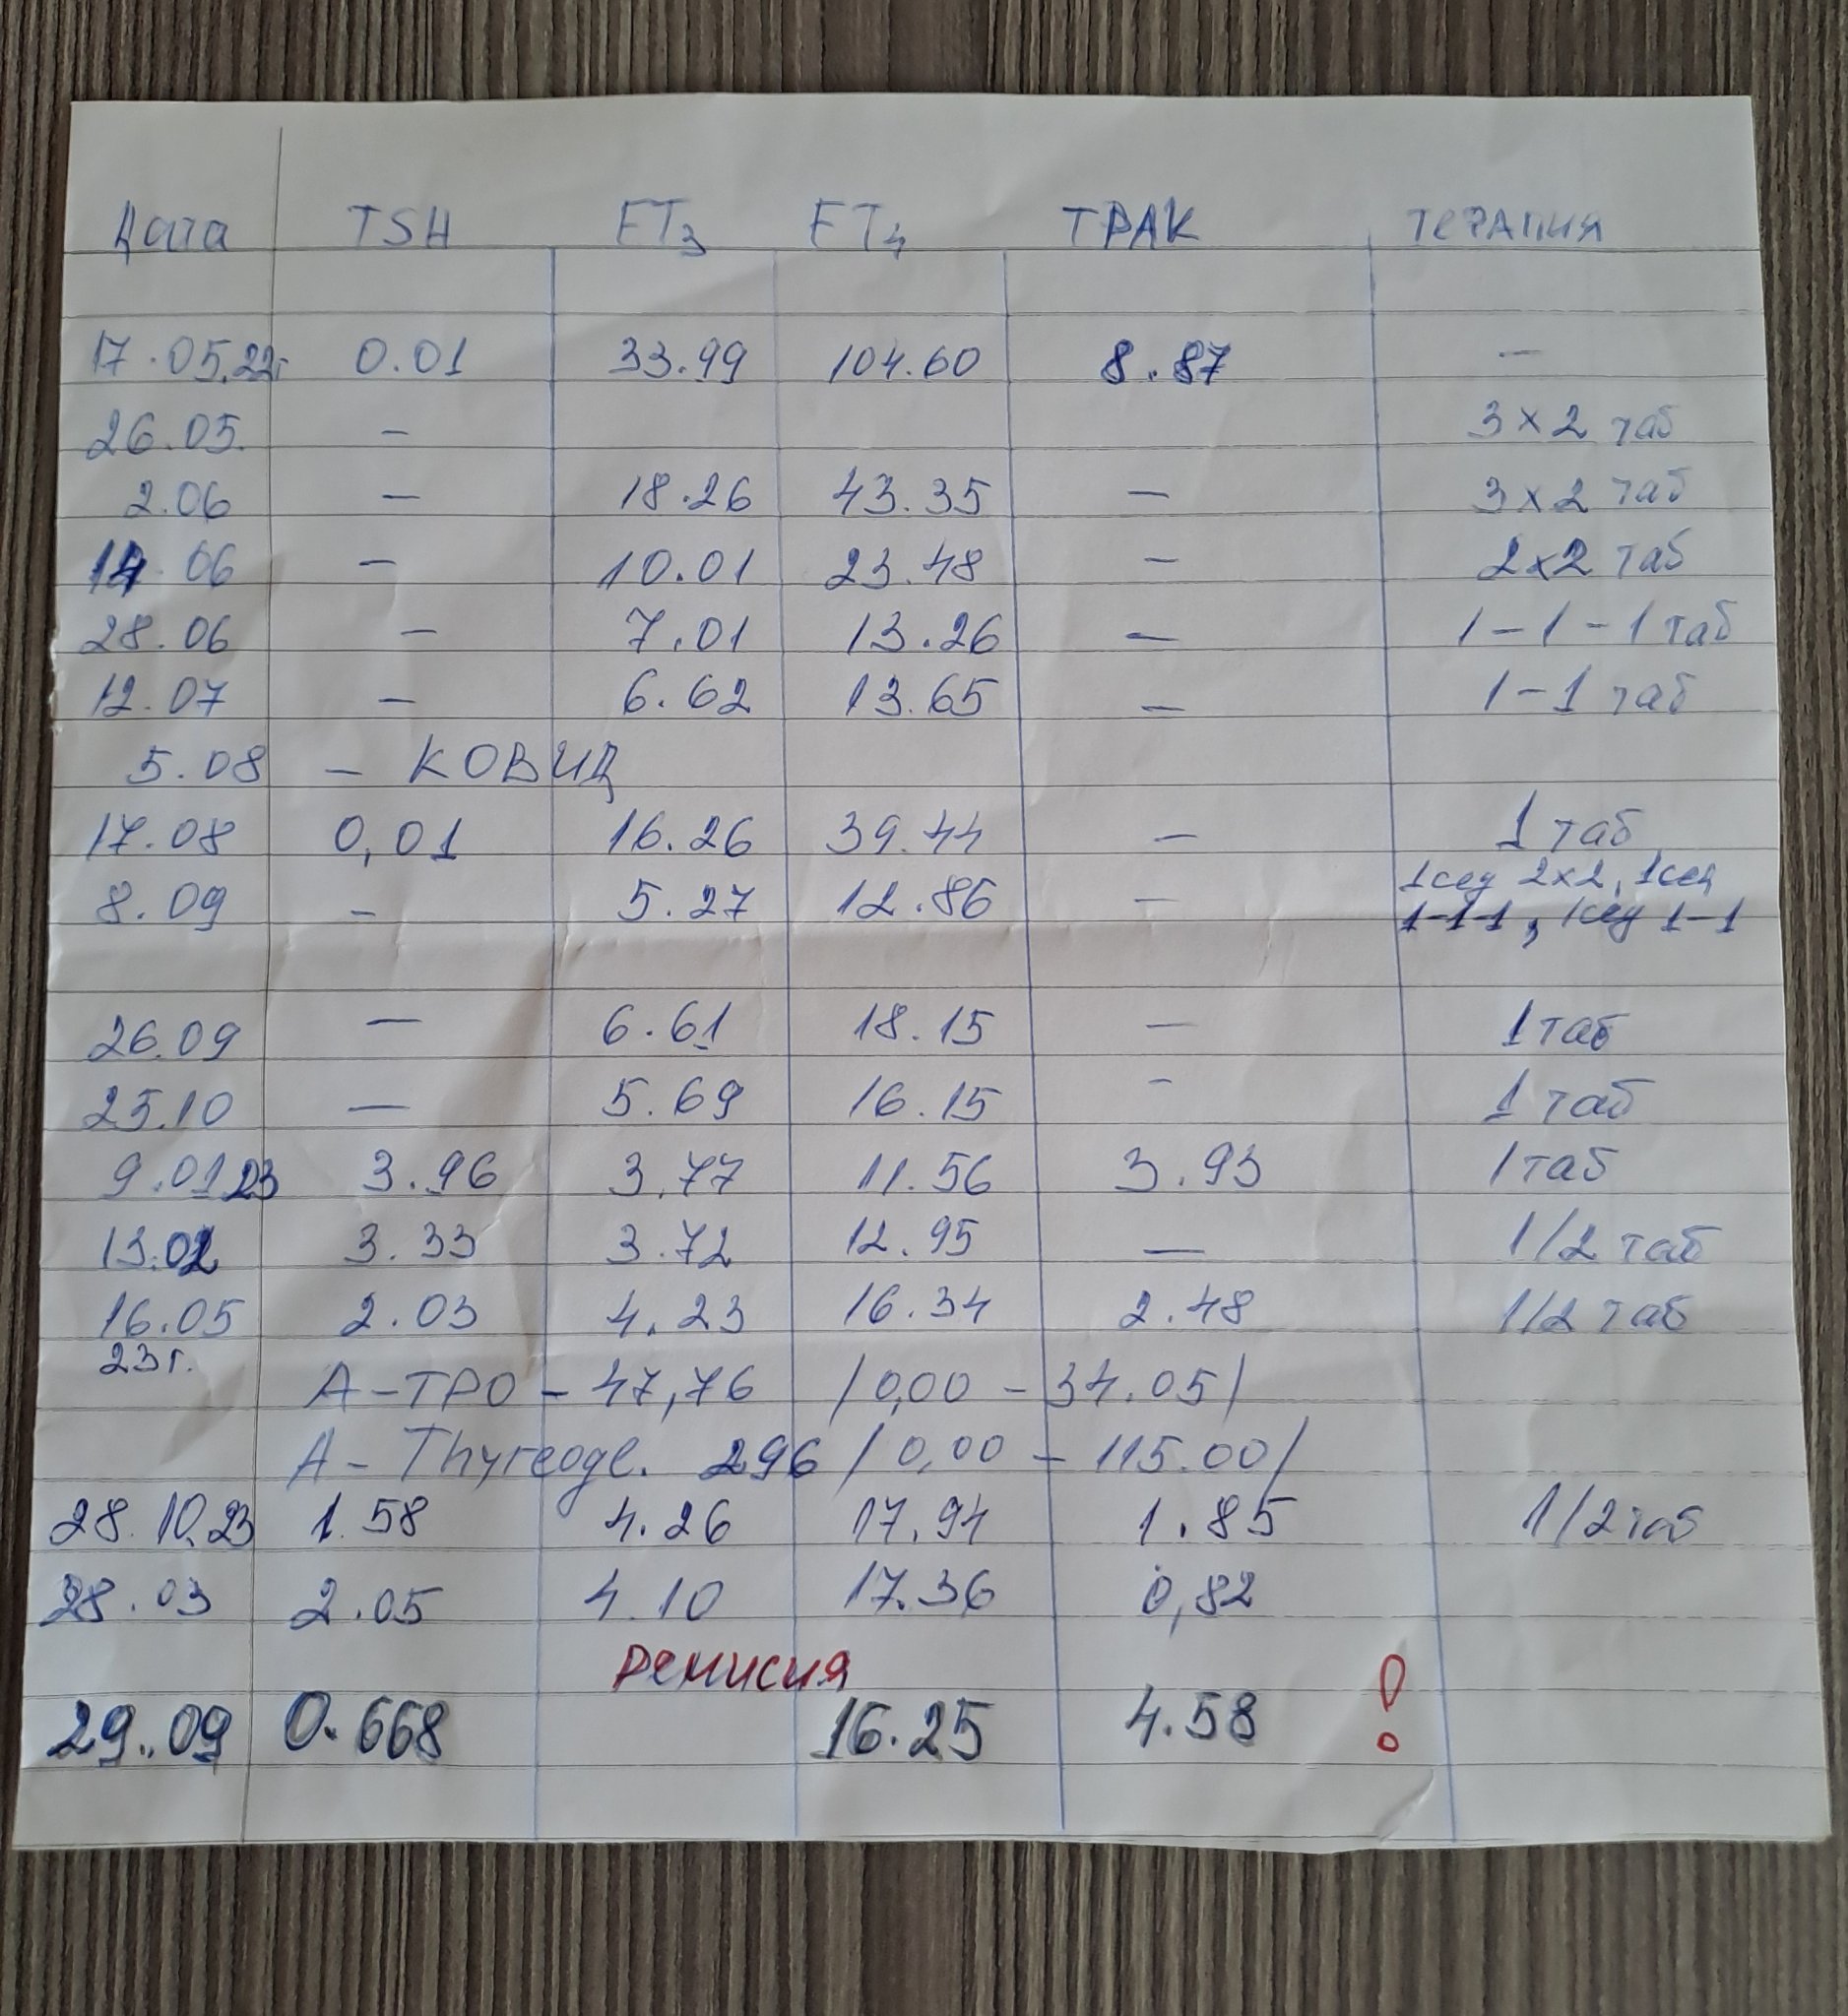 Дата TSH FT3 FT4 ТРАК ТЕРАПИЯ
17.05.22г 0.01 33.99 104.60 8.87 —
26.05. — 3x2 таб
2.06 — 18.26 43.35 — 3x2 таб
14.06 — 10.01 23.48 — 2x2 таб
28.06 — 7.01 13.26 — 1-1-1 таб
12.07 — 6.62 13.65 — 1-1 таб
5.08 — КОВИД
17.08 0,01 16.26 39.44 — 1 таб
8.09 — 5.27 12.86 — 1сед 2x2, 1сед
1-1-1, 1сед 1-1
26.09 — 6.61 18.15 — 1 таб
25.10 — 5.69 16.15 - 1 таб
9.01.23 3.96 3.77 11.56 3.93 1 таб
13.02 3.33 3.72 12.95 — 1/2 таб
16.05 2.03 4.23 16.34 2.48 1/2 таб
23г.
А-ТРО - 47,76 /0,00 - 34.05/
A- Thyreogl. 296 /0,00 - 115.00/
28.10.23 1.58 4.26 17.94 1.85 1/2 таб
28.03 2.05 4.10 17.36 0,82
Ремисия
29.09 0.668 16.25 4.58 !